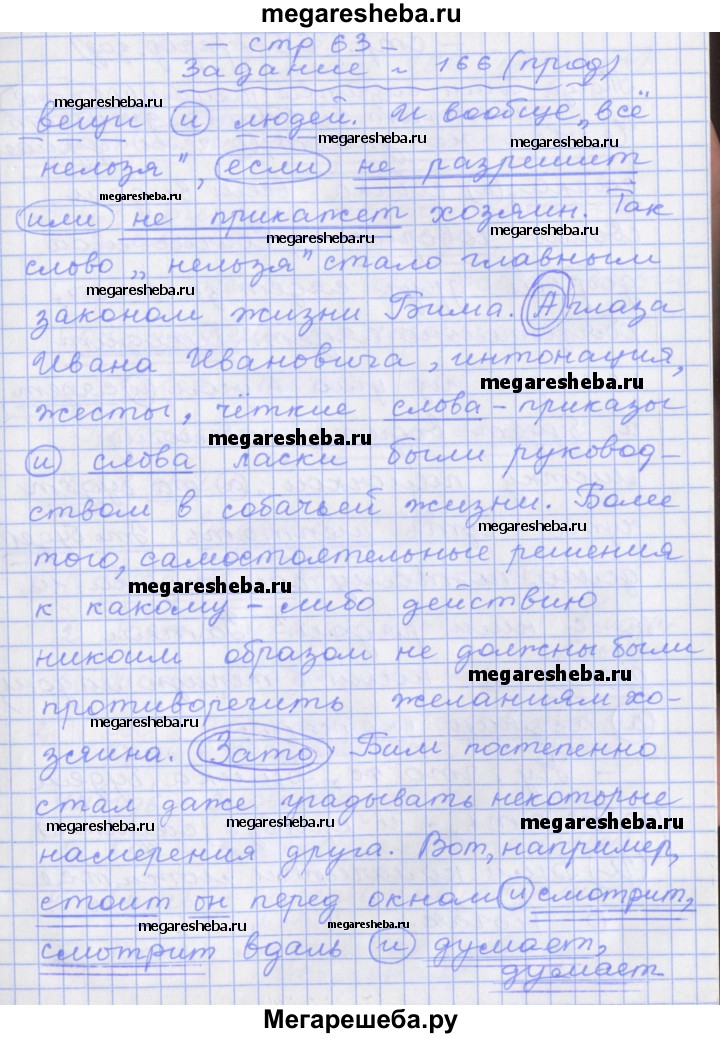 megaresheba.ru
- стр 63 -
Задание ~ 166 (прод)
megaresheba.ru
megaresheba.ru
вещи и людей. И вообще „всё
megaresheba.ru
нельзя", если не разрешит
megaresheba.ru
или не прикажет хозяин. Так
megaresheba.ru
megaresheba.ru
слово „нельзя" стало главным
megaresheba.ru
законом жизни Бима. А глаза
Ивана Ивановича, интонация,
megaresheba.ru
жесты, чёткие слова - приказы
megaresheba.ru
и слова ласки были руковод-
ством в собачьей жизни. Более
megaresheba.ru
того, самостоятельные решения
megaresheba.ru
к какому - либо действию
никоим образом не должны были
megaresheba.ru
противоречить желаниям хо-
megaresheba.ru
зяина. Зато Бим постепенно
стал даже угадывать некоторые
megaresheba.ru
megaresheba.ru
megaresheba.ru
намерения друга. Вот, например,
стоит он перед окном и смотрит,
megaresheba.ru
megaresheba.ru
смотрит вдаль и думает,
думает
Мегарешеба.ру